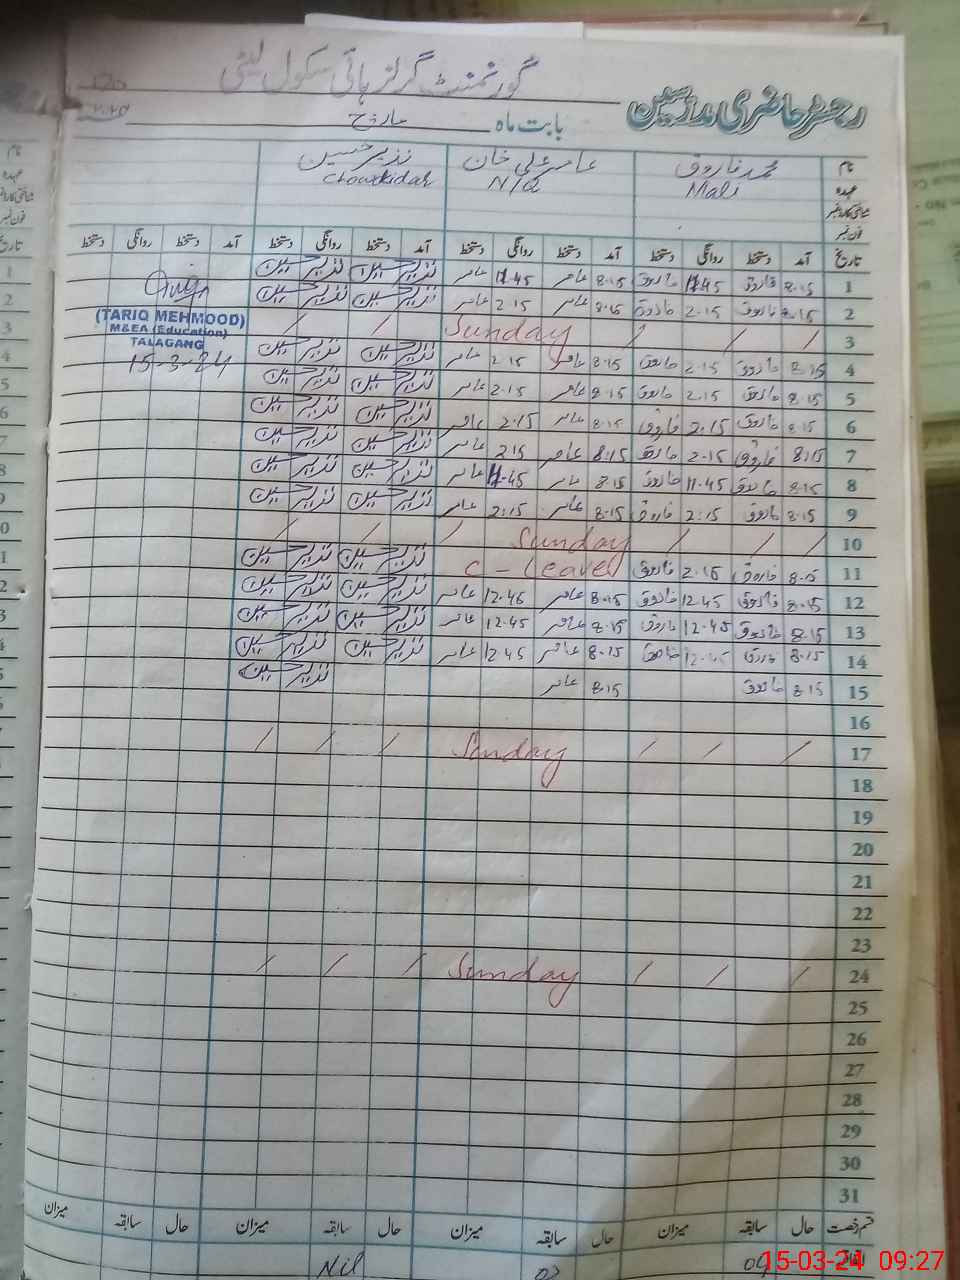 گورنمنٹ گرلز ہائی سکول لیٹی
رجسٹر حاضری مدرسین
بابت ماہ مارچ
نام محمد فاروق عامر علی خان نذیر حسین
عہدہ Mali N/Q Chowkidar
شناختی کارڈ نمبر
فون نمبر
تاریخ آمد دستخط روانگی دستخط آمد دستخط روانگی دستخط آمد دستخط روانگی دستخط آمد دستخط روانگی دستخط
1 8.15 فاروق 11.45 فاروق 8.15 عامر 11.45 عامر نذیر حسین نذیر حسین
2 8.15 فاروق 2.15 فاروق 8.15 عامر 2.15 عامر نذیر حسین نذیر حسین
(TARIQ MEHMOOD)
M&EA (Education)
TALAGANG
15-3-24
3 / / / Sunday / /
4 8.15 فاروق 2.15 فاروق 8.15 عامر 2.15 عامر نذیر حسین نذیر حسین
5 8.15 فاروق 2.15 فاروق 8.15 عامر 2.15 عامر نذیر حسین نذیر حسین
6 8.15 فاروق 2.15 فاروق 8.15 عامر 2.15 عامر نذیر حسین نذیر حسین
7 8.15 فاروق 2.15 فاروق 8.15 عامر 2.15 عامر نذیر حسین نذیر حسین
8 8.15 فاروق 11.45 فاروق 8.15 عامر 11.45 عامر نذیر حسین نذیر حسین
9 8.15 فاروق 2.15 فاروق 8.15 عامر 2.15 عامر نذیر حسین نذیر حسین
10 / / / Sunday / / /
11 8.15 فاروق 2.15 فاروق C - Leave نذیر حسین نذیر حسین
12 8.15 فاروق 12.45 فاروق 8.15 عامر 12.45 عامر نذیر حسین نذیر حسین
13 8.15 فاروق 12.45 فاروق 8.15 عامر 12.45 عامر نذیر حسین نذیر حسین
14 8.15 فاروق 12.45 فاروق 8.15 عامر 12.45 عامر نذیر حسین نذیر حسین
15 8.15 فاروق 8.15 عامر نذیر حسین
16
17 / / / Sunday / / /
18
19
20
21
22
23
24 / / / Sunday / / /
25
26
27
28
29
30
31
قسم رخصت حال سابقہ میزان حال سابقہ میزان حال سابقہ میزان حال سابقہ میزان
Nil
15-03-24 09:27